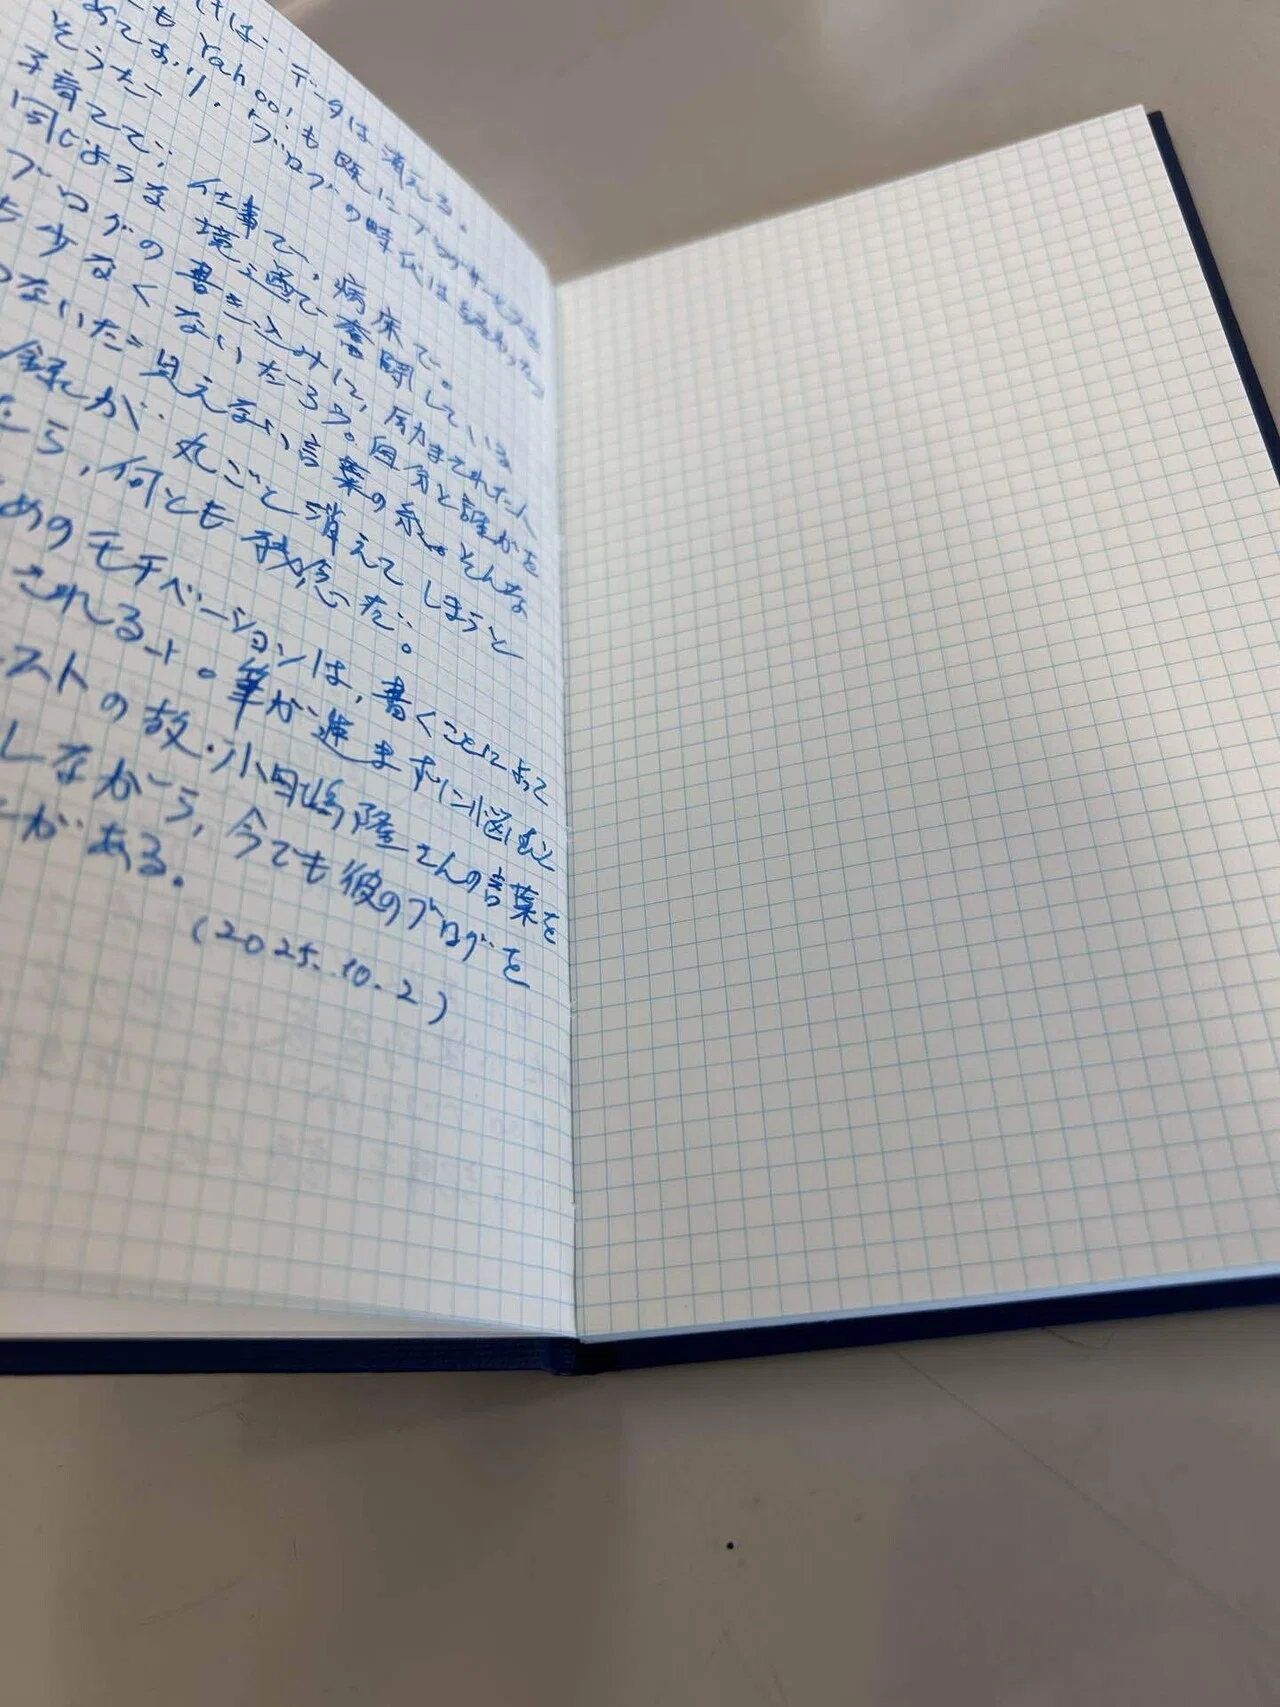 ければ、データは消える。
も Yahoo!も既にブログサービスを
めており、ブログの時代は終わった
そうだ
子育てで、仕事で、病床で。
同じような境遇で奮闘している
ブログの書き込みに、励まされた人
も少なくないだろう。自分と誰かを
つないだ見えない言葉の糸。そんな
録が、丸ごと消えてしまうと
たら、何とも残念だ。
めのモチベーションは、書くことによって
される」。筆が進まずに悩むと
ストの故・小田嶋隆さんの言葉を
しながら、今でも彼のブログを
がある。
(2025.10.2)